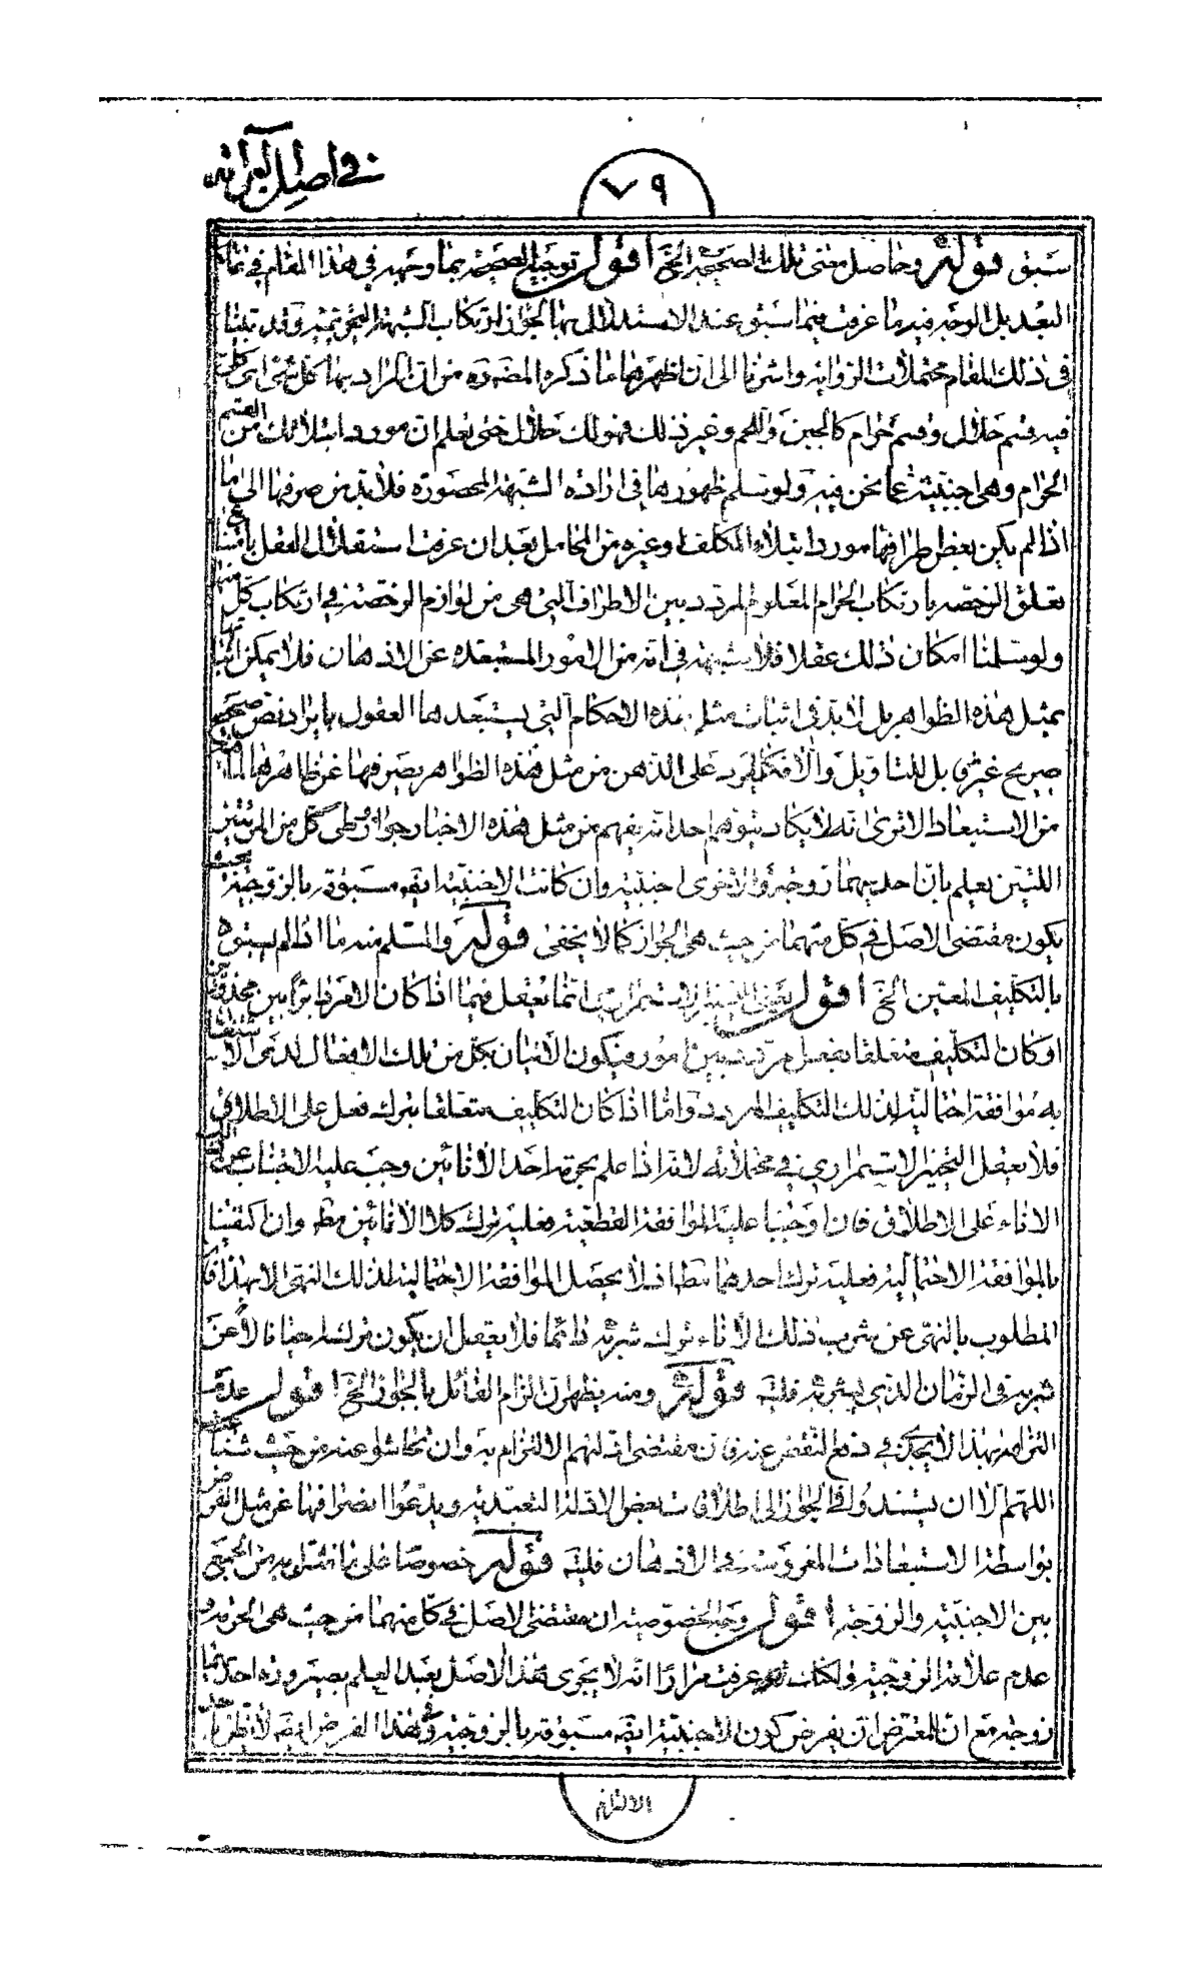 في اصل البرائة
٧٩
سبق قوله وحاصل معنى تلك الصحيحة الخ اقول توجيه الصحيحة بما وجهه في هذا المقام في غاية
البعد بل الوجه فيه ما عرفت فيما سبق عند الاستدلال بها لجواز ارتكاب الشبهة التحريمية وقد بينا
في ذلك المقام محتملات الرواية واشرنا الى ان اظهرها ما ذكره المصنف ره من ان المراد بها كل شئ اى كلى
فيه قسم حلال وقسم حرام كالجبن واللحم وغير ذلك فهو لك حلال حتى تعلم ان مورد ابتلائك من القسم
الحرام وهى اجنبية عما نحن فيه ولو سلم ظهورها في ارادة الشبهة المحصورة فلا بد من صرفها الى ما
اذا لم يكن بعض اطرافها مورد ابتلاء المكلف او غيره من المحامل بعد ان عرفت استقلال العقل بامتناع
تعلق الرخصة بارتكاب الحرام المعلوم المردد بين الاطراف التي هى من لوازم الرخصة في ارتكاب كل منها
ولو سلمنا امكان ذلك عقلا فلا شبهة في انه من الامور المستبعدة عن الاذهان فلا يمكن اثباتها
بمثل هذه الظواهر بل لا بد في اثبات مثل هذه الاحكام التي يستبعدها العقول بايراد نص صحيح
صريح غير قابل للتأويل والا فكلما يرد على الذهن من مثل هذه الظواهر يصرفها عن ظاهرها لما فيه
من الاستبعاد الا ترى انه لا يكاد يتوهم احد انه يفهم من مثل هذه الاخبار جواز وطى كل من المرئتين
اللتين يعلم بان احديهما زوجة والاخرى اجنبية وان كانت الاجنبية ايضا مسبوقة بالزوجية بحيث
يكون مقتضى الاصل في كل منهما من حيث هى الجواز كما لا يخفى قوله والمسلم منه ما اذا لم يسبق
بالتكليف المعين الخ اقول التخيير الاستمرارى انما يعقل فيما اذا كان الامر دائرا بين محذورين
او كان التكليف متعلقا بفعل مردد بين امور فيكون الاتيان بكل من تلك الافعال لدى الاشتغال
به موافقة احتمالية لذلك التكليف المردد واما اذا كان التكليف متعلقا بترك فعل على الاطلاق
فلا يعقل التخيير الاستمراري في محتملاته لانه اذا علم بحرمة احد الانائين وجب عليه الاجتناب عن ذلك
الاناء على الاطلاق فان اوجبنا عليه الموافقة القطعية فعليه ترك كلا الانائين مطلقا وان اكتفينا
بالموافقة الاحتمالية فعليه ترك احدهما مطلقا فلا يحصل الموافقة الاحتمالية لذلك النهى الا بهذا فان
المطلوب بالنهى عن شرب ذلك الاناء ترك شربه دائما فلا يعقل ان يكون تركه احيانا بدلا عن
شربه في الزمان الذي يشربه فليتأمل قوله ومنه يظهر ان الزام القائل بالجواز الخ اقول عدم
التزامهم بهذا لا يجدى في دفع النقض عنه فان مقتضى ادلتهم الالتزام به وان تحاشوا عنه من حيث شناعته
اللهم الا ان يستندوا في الجواز الى اطلاق بعض الادلة التعبدية ويدعوا انصرافها عن مثل الفرض
بواسطة الاستبعادات المغروسة في الاذهان فليتأمل قوله خصوصا على ما مثل به من الجمع
بين الاجنبية والزوجة اقول وجه الخصوصية ان مقتضى الاصل في كل منهما من حيث هى الحرمة و
عدم علاقة الزوجية ولكنك قد عرفت مرارا انه لا يجرى هذا الاصل بعد العلم بصيرورة احديهما
زوجة مع ان للمعترض ان يفرض كون الاجنبية ايضا مسبوقة بالزوجية وفي هذا الفرض ايضا لا نظن باحد
الالتزام